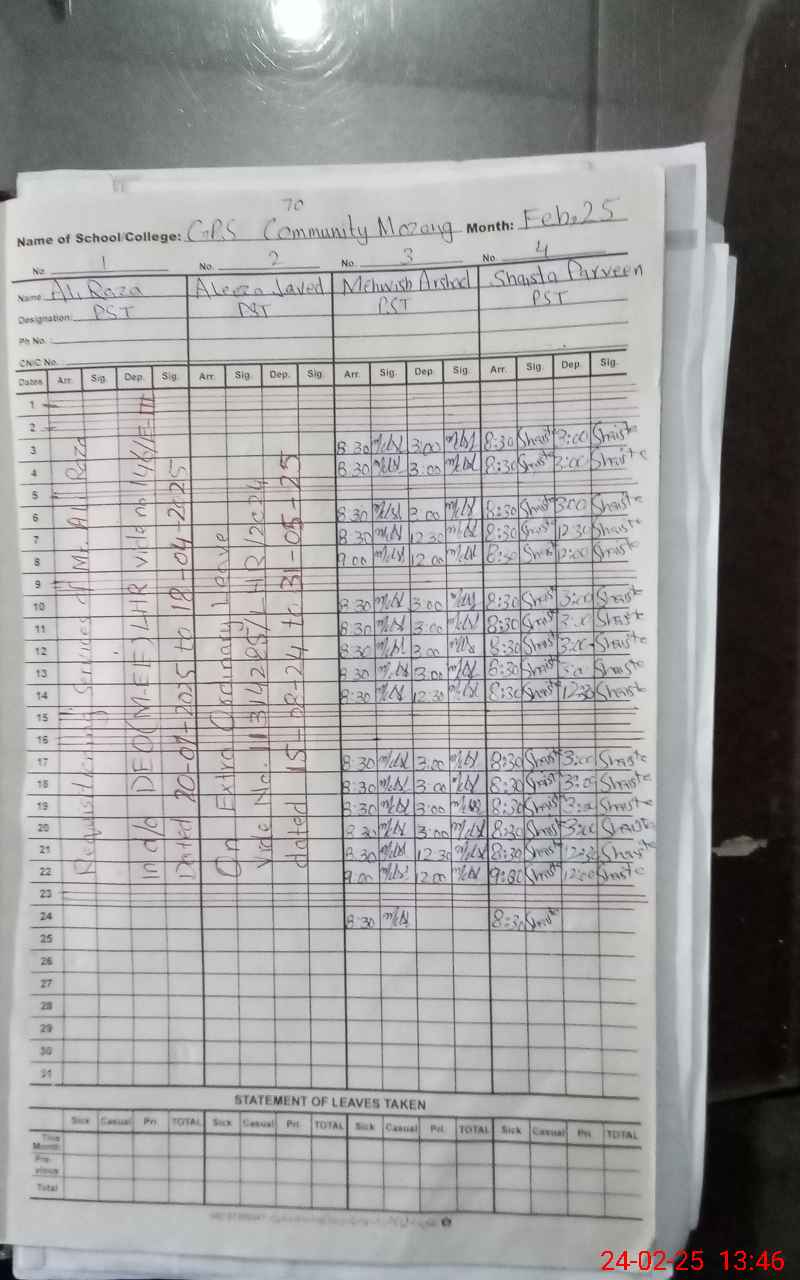 70
Name of School/College: G.P.S Community Mozang Month: Feb, 25
No 1 No. 2 No. 3 No. 4
Name: Ali Raza Aleeza Javed Mehwish Arshad Shaista Parveen
Designation: PST PST PST PST
Ph No.:
CNIC No.
Dates Arr. Sig. Dep. Sig. Arr. Sig. Dep. Sig. Arr. Sig. Dep. Sig. Arr. Sig. Dep. Sig.
Requisitioning Services of Mr. Ali Raza
in o/o DEO(M-EE)LHR vide no 146/E-III
Dated 20-01-2025 to 18-04-2025
On Extra Ordinary Leave
Vide No. 11314285/LHR/2024
dated 15-08-24 to 31-05-25
1
2
3 8:30 3:00 8:30 Shaista 3:00 Shaista
4 8:30 3:00 8:30 Shaista 3:00 Shaista
5
6 8:30 3:00 8:30 Shaista 3:00 Shaista
7 8:30 12:30 8:30 Shaista 12:30 Shaista
8 9:00 12:00 8:30 Shaista 12:00 Shaista
9
10 8:30 3:00 8:30 Shaista 3:00 Shaista
11 8:30 3:00 8:30 Shaista 3:00 Shaista
12 8:30 3:00 8:30 Shaista 3:00 Shaista
13 8:30 3:00 8:30 Shaista 3:00 Shaista
14 8:30 12:30 8:30 Shaista 12:30 Shaista
15
16
17 8:30 3:00 8:30 Shaista 3:00 Shaista
18 8:30 3:00 8:30 Shaista 3:00 Shaista
19 8:30 3:00 8:30 Shaista 3:00 Shaista
20 8:30 3:00 8:30 Shaista 3:00 Shaista
21 8:30 12:30 8:30 Shaista 12:30 Shaista
22 9:00 12:00 9:00 Shaista 12:00 Shaista
23
24 8:30 8:30 Shaista
25
26
27
28
29
30
31
STATEMENT OF LEAVES TAKEN
Sick Casual Pri. TOTAL Sick Casual Pri. TOTAL Sick Casual Pri. TOTAL Sick Casual Pri. TOTAL
This Month
Pre-vious
Total
24-02-25 13:46